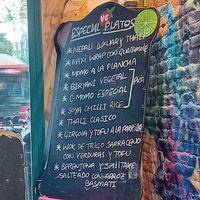 ESPECIAL PLATOS
* NEPALI LUXARY THALI
* MAXI WRAP CON GUACAMOLE
* MOMO A LA PLANCHA
* BIRYANI VEGETAL
* C-MOMO ESPECIAL
* SOYA CHILLI RICE
* THALI CLASICO
* GIRGOLA Y TOFU A LA PARRILLA
* WOK DE TRIGO SARRACENO
CON VERDURAS Y TOFU
* BERENJENA Y
SALTEADO CON ARROZ
BASMATI